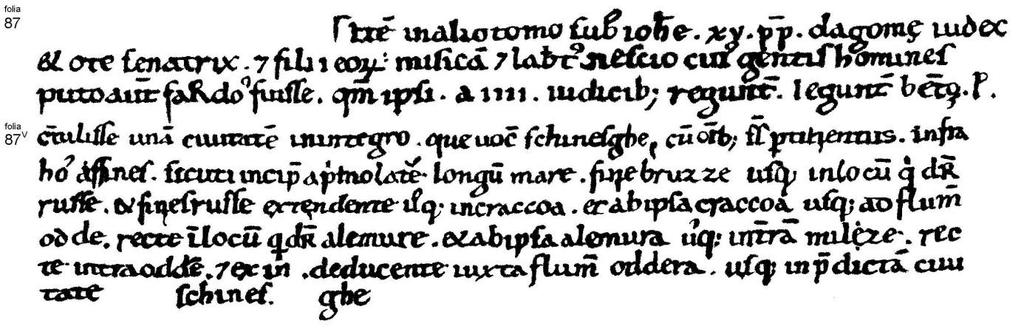 folia
87
Itē in alio tomo sub iohe. xv. pp. dagome iudex
& ote senatrix. ⁊ filii eoꝝ: misicā ⁊ lābtꝰ nescio cuiꝰ gentis homines
puto aut̄ sardoꝰ fuisse. qm̄ ipsi. a IIII. iudicib; regunt̄. legunt̄ bētę. P.
folia
87v
c̄tulisse unā ciuitatē in integro. que uoc̄ schinesghe, cū oīb; sīs ptinentiis. infra
hoꝰ affines. sicuti incip̄ a p̍mo latē longū mare. fine bruzze usq; in locū q̍ dr̄
russe. & fines russe extendente usq; in craccoa. et ab ipsa craccoa usq; ad flum̄
odde. recte in locū q̍ dr̄ alemure. & ab ipsa alemura usq; in t̄rā milze. rec
te intra oddē. ⁊ exin̄. deducente iuxta flum̄ oddera. usq; in p̄dictā ciui
tatē schines. ghe